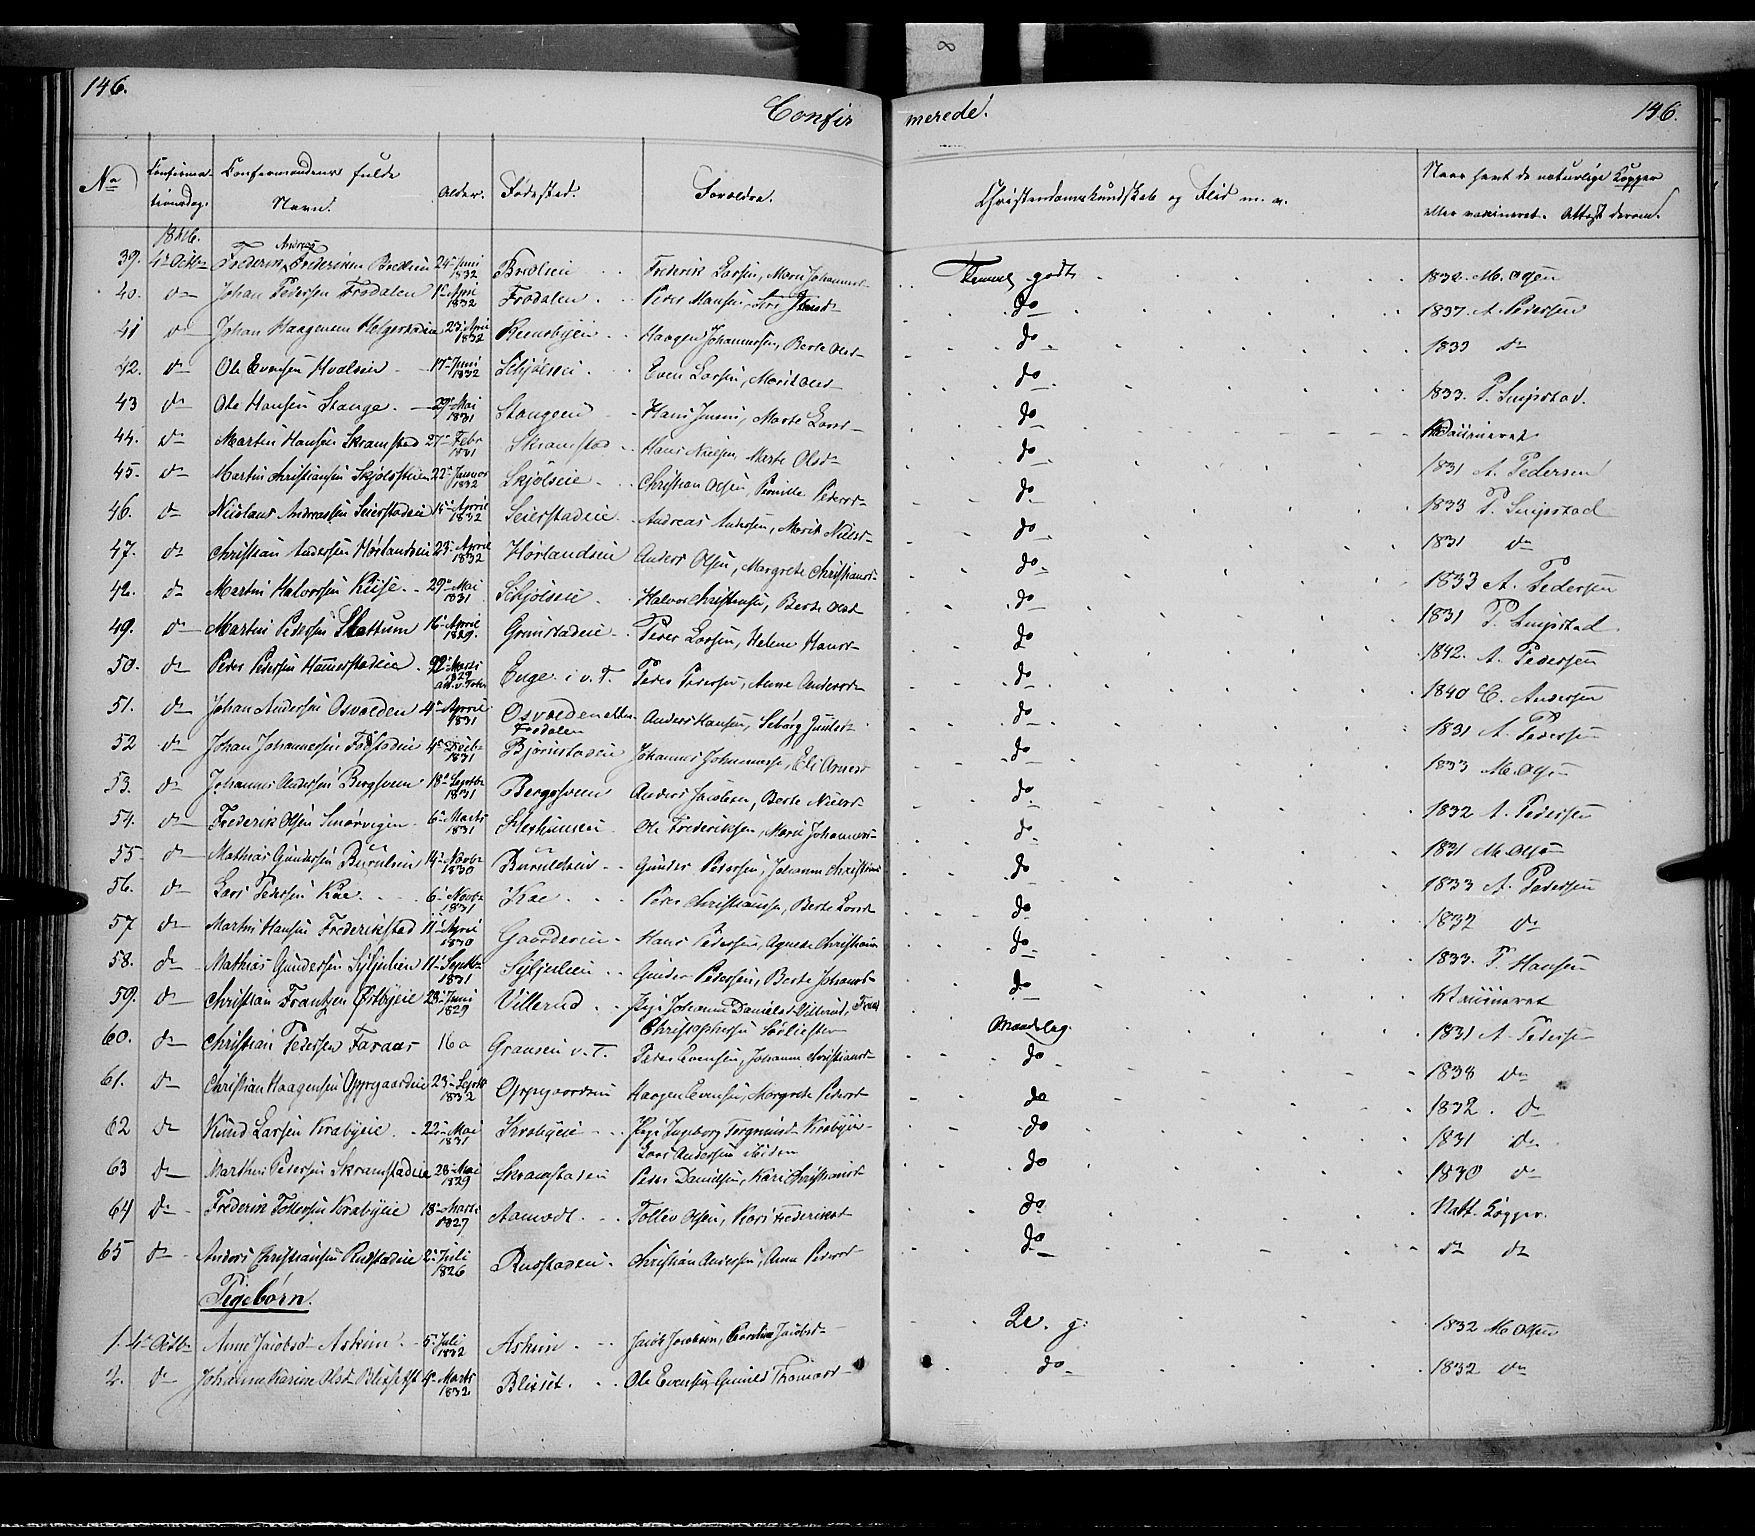 146.
Confir merede. 146.
No Confirma- tionsdag. Confirmandens fulde Navn. Alder. Fødested. Forældre. Christendomskundskab og Flid m. v. Naar havt de naturlige Kopper eller vaxineret. Attest derom.
1846.
39. 4de Octbr Frederik Andreas Frederiksen Brædlien 24de Juni 1832 Brædlien Frederik Larsen, Marie Johannesd. godt 1832. M. Olsen
40. do Johan Pedersen Frodalen 1ste April 1832 Frodalen Peder Hansen, do 1837. A. Pedersen
41 do Johan Haagensen 23de April 1832 Haagen Johannesen, Berte Olsd. do 1833 do
42. do Ole Evensen Hvalseie 17de Juni 1832 Schjølseie Even Larsen, Marit Olsd. do 1833. P. Lupstad.
43 do Ole Hansen Stange. 29de Mai 1831 Stangeeie Hans Jensen, Marte Larsd. do Vaccineret
44. do Martin Hansen Skramstad 27de Febr 1831 Skramstad Hans Nielsen, Marte Olsd. do 1831 A. Pedersen
45. do Martin Christiansen Skjølseieie 22de Januar 1832 Skjølseie Christian Olsen, Pernille Pedersd. do 1833 P. Lupstad
46. do Nicolaus Andreassen Seierstadeie 15de April 1832 Seierstadeie Andreas Andersen, Marit Nielsd. do 1831 do
47. do Christian Andersen Hørlandseie 23de April 1832 Hørlandseie Anders Olsen, Margrete Christiansd. do 1833 A. Pedersen
48. do Martin Halvorsen Kiise 29de Mai 1831 Schjølseie Halvor Christensen, Berte Olsd. do 1831 P. Lupstad
49. do Martin Pedersen Slettum 16de April 1829. Grimstadeie Peder Larsen, Helene Hansd. do 1842. A. Pedersen
50. do Peder Pedersen Hammerstadeie 22de Marts 1829 Enge i v. T. Peder Pedersen, Anne Andersd. do 1840 C. Andersen
51. do Johan Andersen Osvolden 4de April 1831 Osvolden Frodalen Anders Hansen, do 1831 A. Pedersen
52 do Johan Johannesen 4de 1831 Bjørnstadeie Johannes Johannesen, Eli Arnesd. do 1833 M. Olsen
53. do Johannes Andersen Bergsveen 18de Septbr 1831 Bergsveen Anders Jacobsen, Berte Nielsd. do 1832 A. Pedersen
54. do Frederik Olsen Smørvigen 6te Marts 1831 Ole Frederiksen, Marie Johannesd. do 1831 M. Olsen
55. do Mathias Gundersen Buruleie 14de Novbr 1830 Gunder Pedersen, Johanne Christiansd. do 1833 A. Pedersen
56. do Lars Pedersen Kae. 6te Novbr 1831 Kae Peder Christiansen, Berte Larsd. do 1832 do
57 do Martin Hansen Frederikstad 11te April 1830 Gaarderen Hans Pedersen, Agnete Christiansd. do 1833. P. Hansen
58. do Mathias Gundersen Syljulien 11te Septbr 1831 Syljulien Gunder Pedersen, Berte Johannesd. do Vaccineret
59. do Christian Frantzen Østbyeie 28de Juni 1829 Villerud Pige Johanne Danielsd. Villerud, Frants Christophersen Maadelig. 1831 A. Pedersen
60. do Christian Pedersen Faraas 16 a Gransen v. T. Peder Evensen, Johanne Christiansd. do 1838 do
61. do Christian Haagensen Oppegaardeie 23de Septbr 1832 Oppegaardeie Haagen Evensen, Margrete Pedersd. do 1832. do
62 do Knud Larsen Krabyeie 22de Mai 1831 Krabyeie Pige Ingeborg Krabyeie Lars Andersen do 1831 do
63 do Marthin Pedersen Skramstadeie 28de Mai 1829 Skramstadeie Peder Danielsen, Kari Christiansd. do 1830 do
64 do Frederik Tollefsen Krabyeie 18de Marts 1827 Aamodt Tollev Olsen, Kari Frederiksd. do Natt. Kopper.
65 do Anders Christiansen Rustadeie 2den Juli 1826 Rustadeie Christian Andersen, Anne Pedersd. do do do
Pigebørn.
1. 4de Octbr Anne Jacobsd. Askim 5te Juli 1832 Askim Jacob Jacobsen, Jacobsd. g: 1832 M. Olsen
2. do Johanne Karine Olsd. Blixet 4de Marts 1832 Blixet Ole Evensen, Gunild Thomasd. do 1832 do